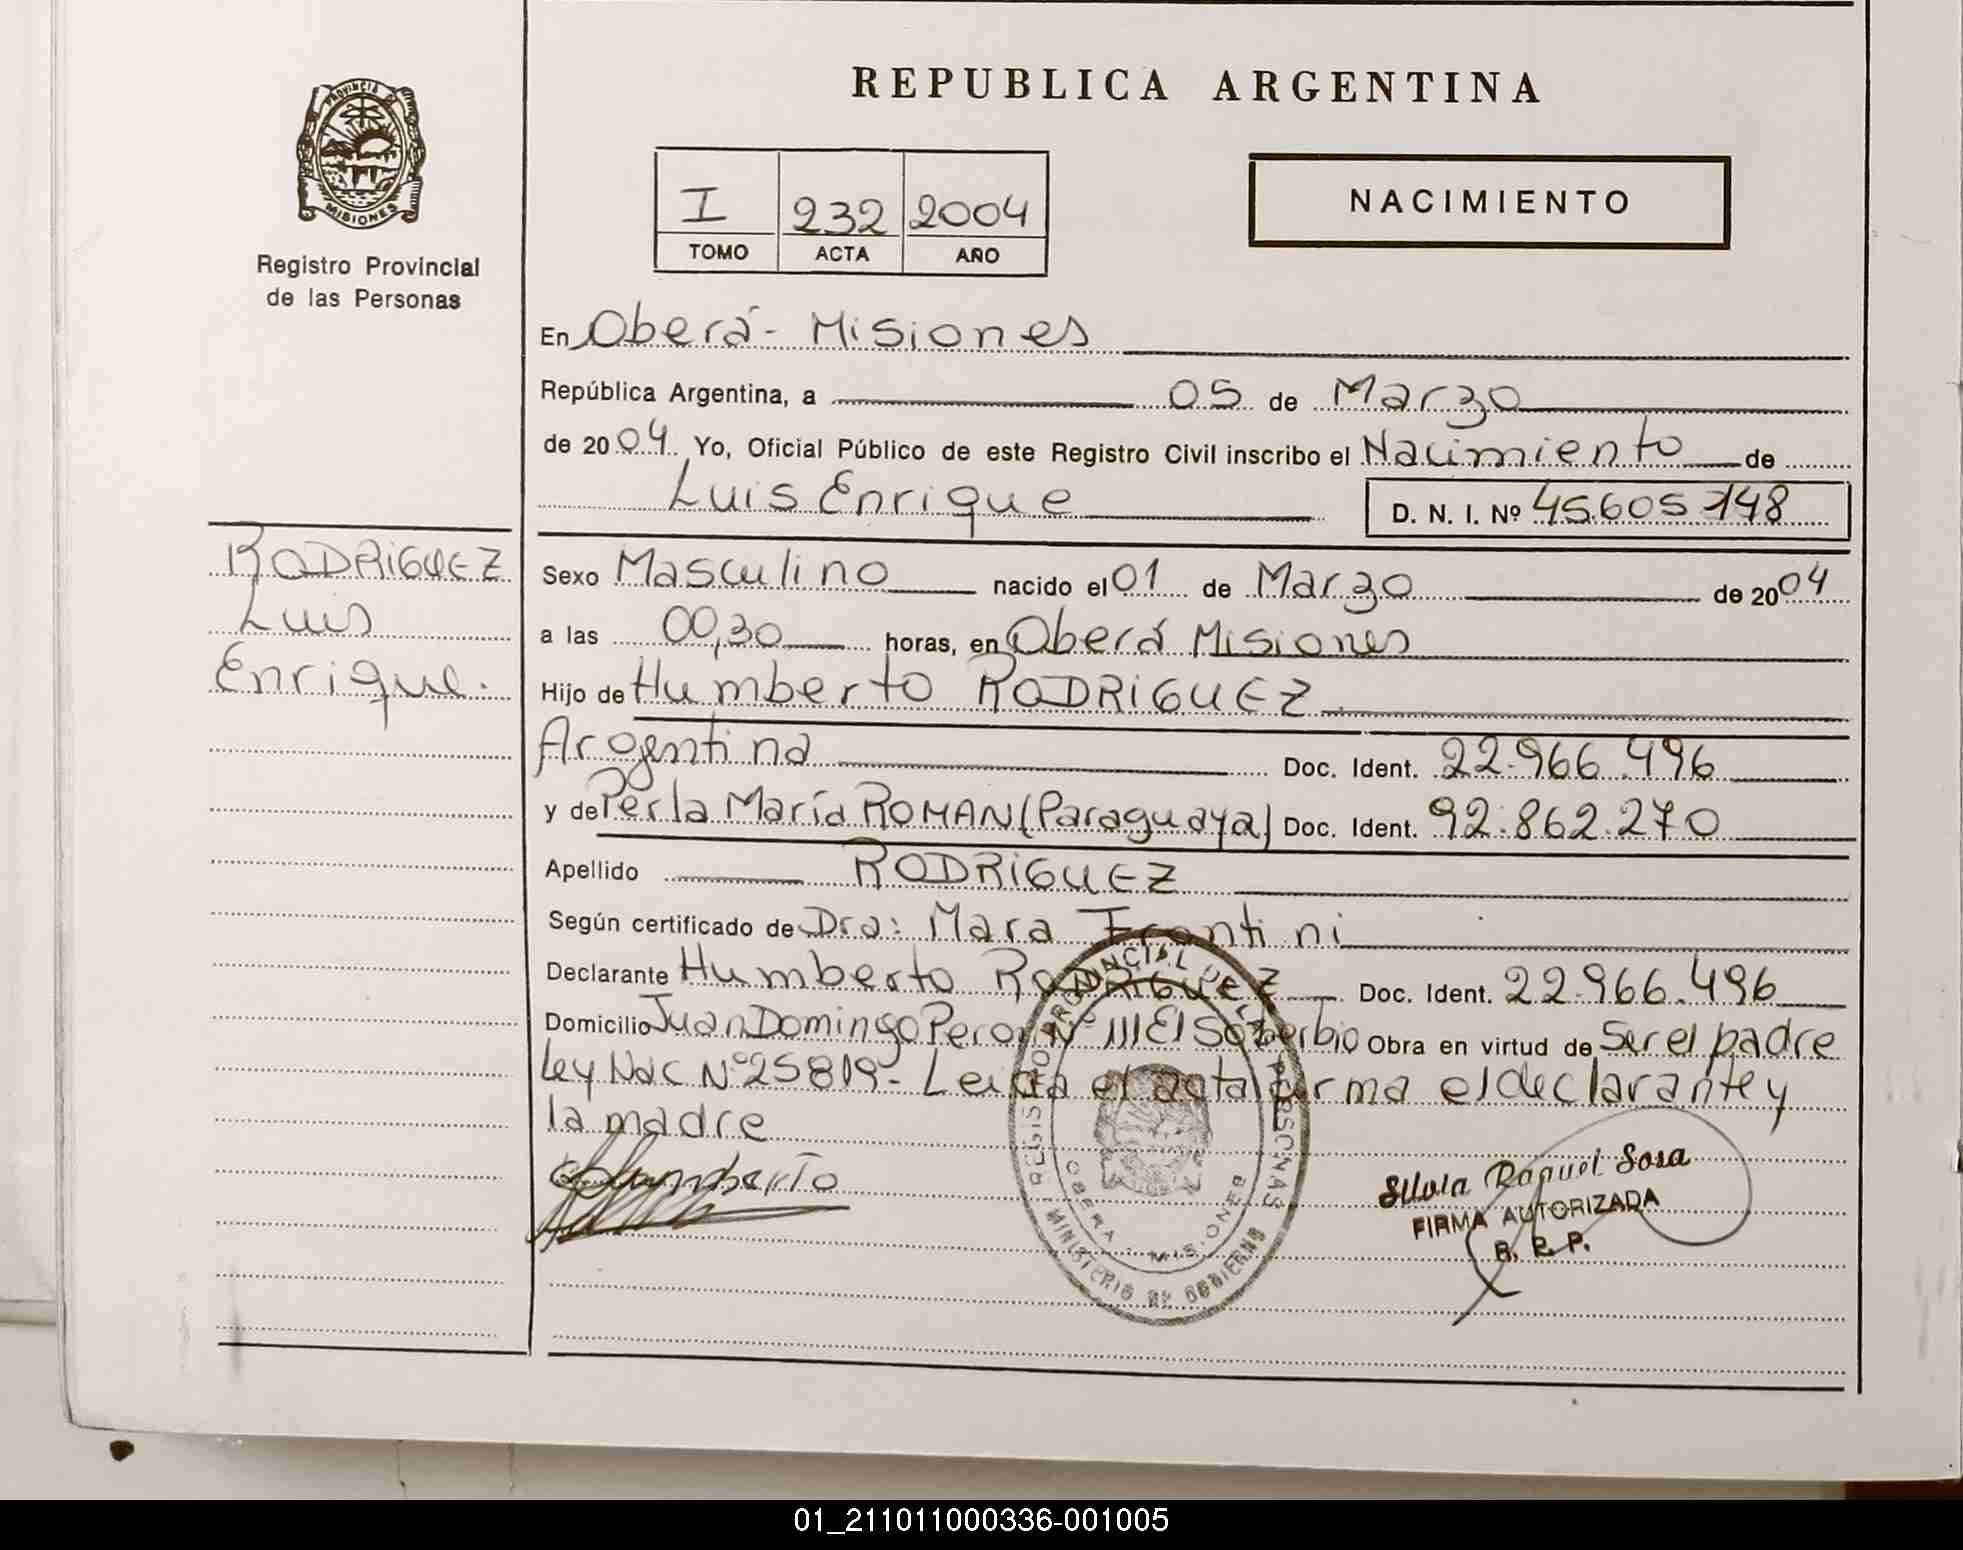 REPUBLICA ARGENTINA
PROVINCIA DE
MISIONES
Registro Provincial
de las Personas
I 232 2004
TOMO ACTA AÑO
NACIMIENTO
En Oberá - Misiones
República Argentina, a 05 de Marzo
de 2004 Yo, Oficial Público de este Registro Civil inscribo el Nacimiento de
Luis Enrique D. N. I. Nº 45.605.148
RODRIGUEZ
Luis
Enrique.
Sexo Masculino nacido el 01 de Marzo de 2004
a las 00,30 horas, en Oberá Misiones
Hijo de Humberto RODRIGUEZ
Argentina Doc. Ident. 22.966.496
y de Perla María ROMAN (Paraguaya) Doc. Ident. 92.862.270
Apellido RODRIGUEZ
Según certificado de Dra: Mara Frontini
Declarante Humberto RODRIGUEZ Doc. Ident. 22.966.496
Domicilio Juan Domingo Peron Nº 111 El Soberbio Obra en virtud de Ser el padre
Ley Nac Nº 25819 - Leida el acta firma el declarante y
la madre
Humberto
REGISTRO PROVINCIAL DE LAS PERSONAS
OBERA - MISIONES
MINISTERIO DE GOBIERNO
Silvia Raquel Sosa
FIRMA AUTORIZADA
R. P. P.
01_211011000336-001005